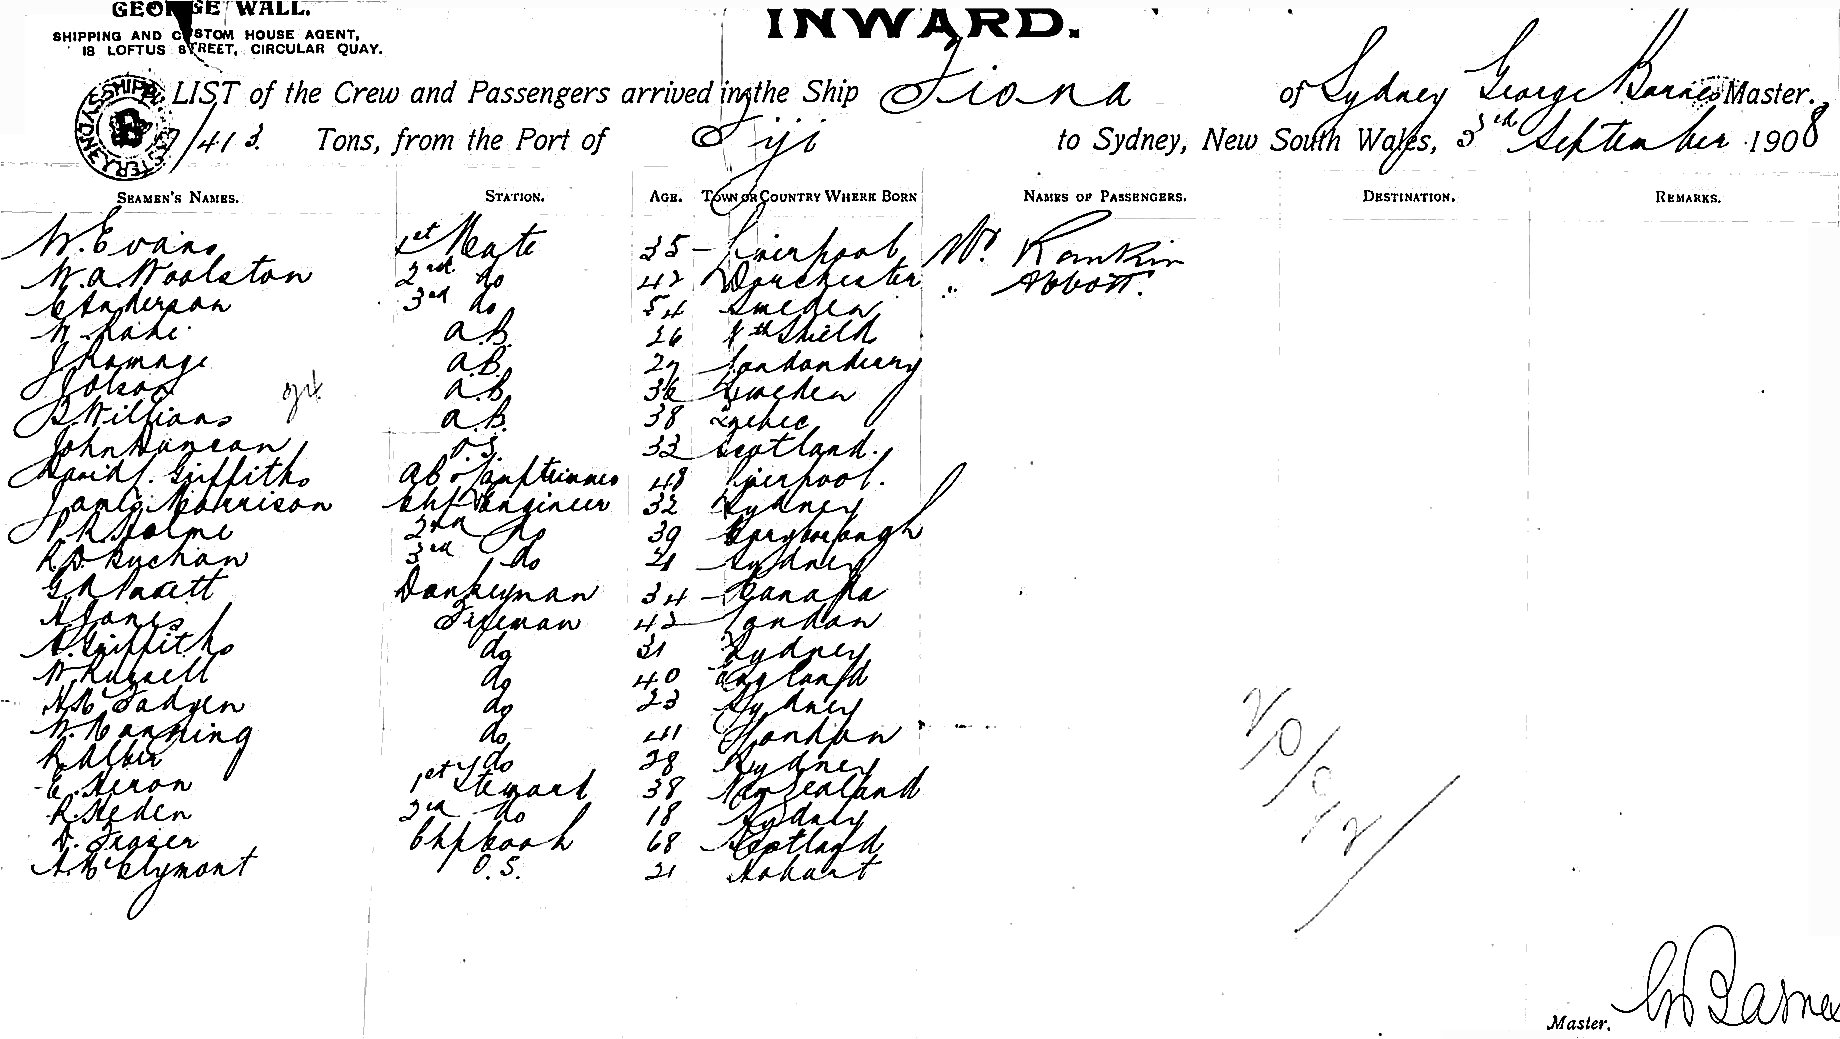 GEORGE WALL.
SHIPPING AND CUSTOM HOUSE AGENT,
18 LOFTUS STREET, CIRCULAR QUAY.
INWARD.
LIST of the Crew and Passengers arrived in the Ship Fiona of Sydney George Barnes Master.
413 Tons, from the Port of Fiji to Sydney, New South Wales, 23rd September 1908
SEAMEN'S NAMES. STATION. AGE. TOWN OR COUNTRY WHERE BORN NAMES OF PASSENGERS. DESTINATION. REMARKS.
W. Evans 1st Mate 35 Liverpool Mr. Rankin
W. A. Woolston 2nd do 42 Dorchester " Abbott
C Anderson 3rd do 54 Sweden
W. a.B. 26 Nth Shield
J Ramage a.B. 27 Londonderry
J Olson a.B. 36 Sweden
B Williams a.B. 38 Quebec
John Duncan O.S. 32 Scotland.
David J. Griffiths ab & Lamptrimmer 48 Liverpool.
James Morrison Chf Engineer 32 Sydney
2nd do 39 Maryborough
R D Buchan 3rd do 21 Sydney
G A Donkeyman 34 Canada
A Jones Fireman 42 London
A. Griffiths do 31 Sydney
W Russell do 40 England
H McFadyen do 23 Sydney
W. Manning do 41 London
R Alber do 28 Sydney
E. Heron 1st Steward 38 New Zealand
R. Heden 2nd do 18 Sydney
D. Frazer Chf cook 68 Scotland
A. McClymont O.S. 21 Hobart
20/9/12
Master. G Barnes